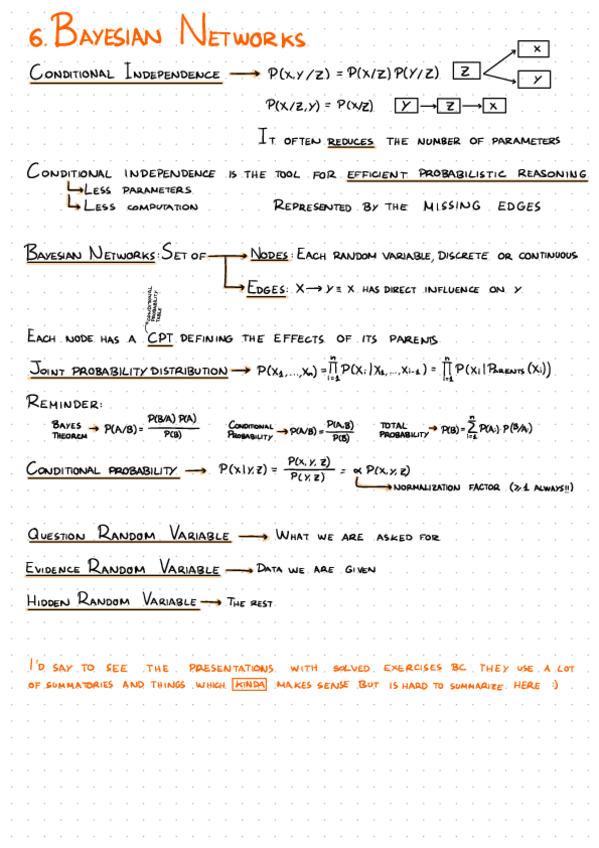 6. BAYESIAN NETWORKS
CONDITIONAL INDEPENDENCE → P(X,Y/Z) = P(X/Z) P(Y/Z) Z X Y
P(X/Z,Y) = P(X/Z) Y → Z → X
IT OFTEN REDUCES THE NUMBER OF PARAMETERS
CONDITIONAL INDEPENDENCE IS THE TOOL FOR EFFICIENT PROBABILISTIC REASONING
LESS PARAMETERS
LESS COMPUTATION REPRESENTED BY THE MISSING EDGES
BAYESIAN NETWORKS: SET OF → NODES: EACH RANDOM VARIABLE, DISCRETE OR CONTINUOUS
EDGES: X → Y ≡ X HAS DIRECT INFLUENCE ON Y
CONDITIONAL PROBABILITY TABLE
EACH NODE HAS A CPT DEFINING THE EFFECTS OF ITS PARENTS
JOINT PROBABILITY DISTRIBUTION → P(X1,...,Xn) = ∏ i=1 n P(Xi|X1,...,Xi-1) = ∏ i=1 n P(Xi|PARENTS(Xi))
REMINDER:
BAYES THEOREM → P(A/B) = P(B/A) P(A) / P(B) CONDITIONAL PROBABILITY → P(A/B) = P(A,B) / P(B) TOTAL PROBABILITY → P(B) = ∑ i=1 n P(Ai) · P(B/Ai)
CONDITIONAL PROBABILITY → P(X|Y,Z) = P(X,Y,Z) / P(Y,Z) = α P(X,Y,Z)
NORMALIZATION FACTOR (≥1 ALWAYS!!)
QUESTION RANDOM VARIABLE → WHAT WE ARE ASKED FOR
EVIDENCE RANDOM VARIABLE → DATA WE ARE GIVEN
HIDDEN RANDOM VARIABLE → THE REST
I'D SAY TO SEE THE PRESENTATIONS WITH SOLVED EXERCISES BC THEY USE A LOT
OF SUMMATORIES AND THINGS WHICH KINDA MAKES SENSE BUT IS HARD TO SUMMARIZE HERE :)